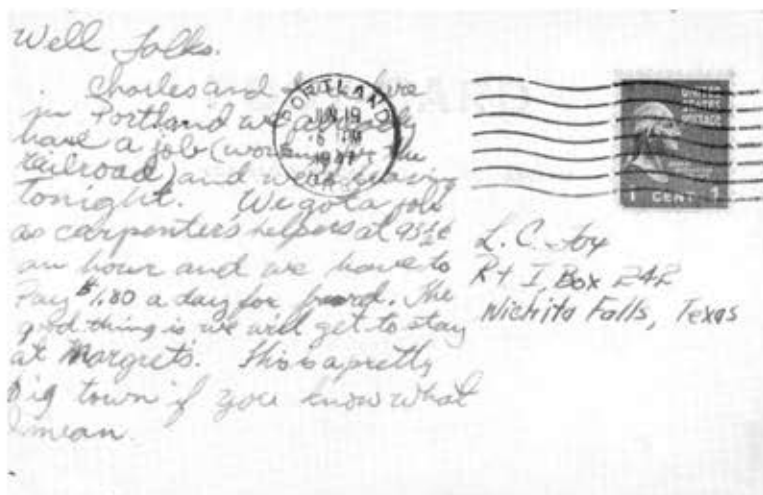 Well Folks.
Charles and I are here
in Portland we already
have a job (working for the
railroad) and we're leaving
tonight. We got a job
as carpenter's helpers at 93½¢
an hour and we have to
Pay $1.80 a day for board. The
good thing is we will get to stay
at Margret's. This is a pretty
big town if you know what
I mean.
PORTLAND
1947
UNITED
STATES
1 CENT 1
L. C. Fox
Rt I, Box 242
Wichita Falls, Texas